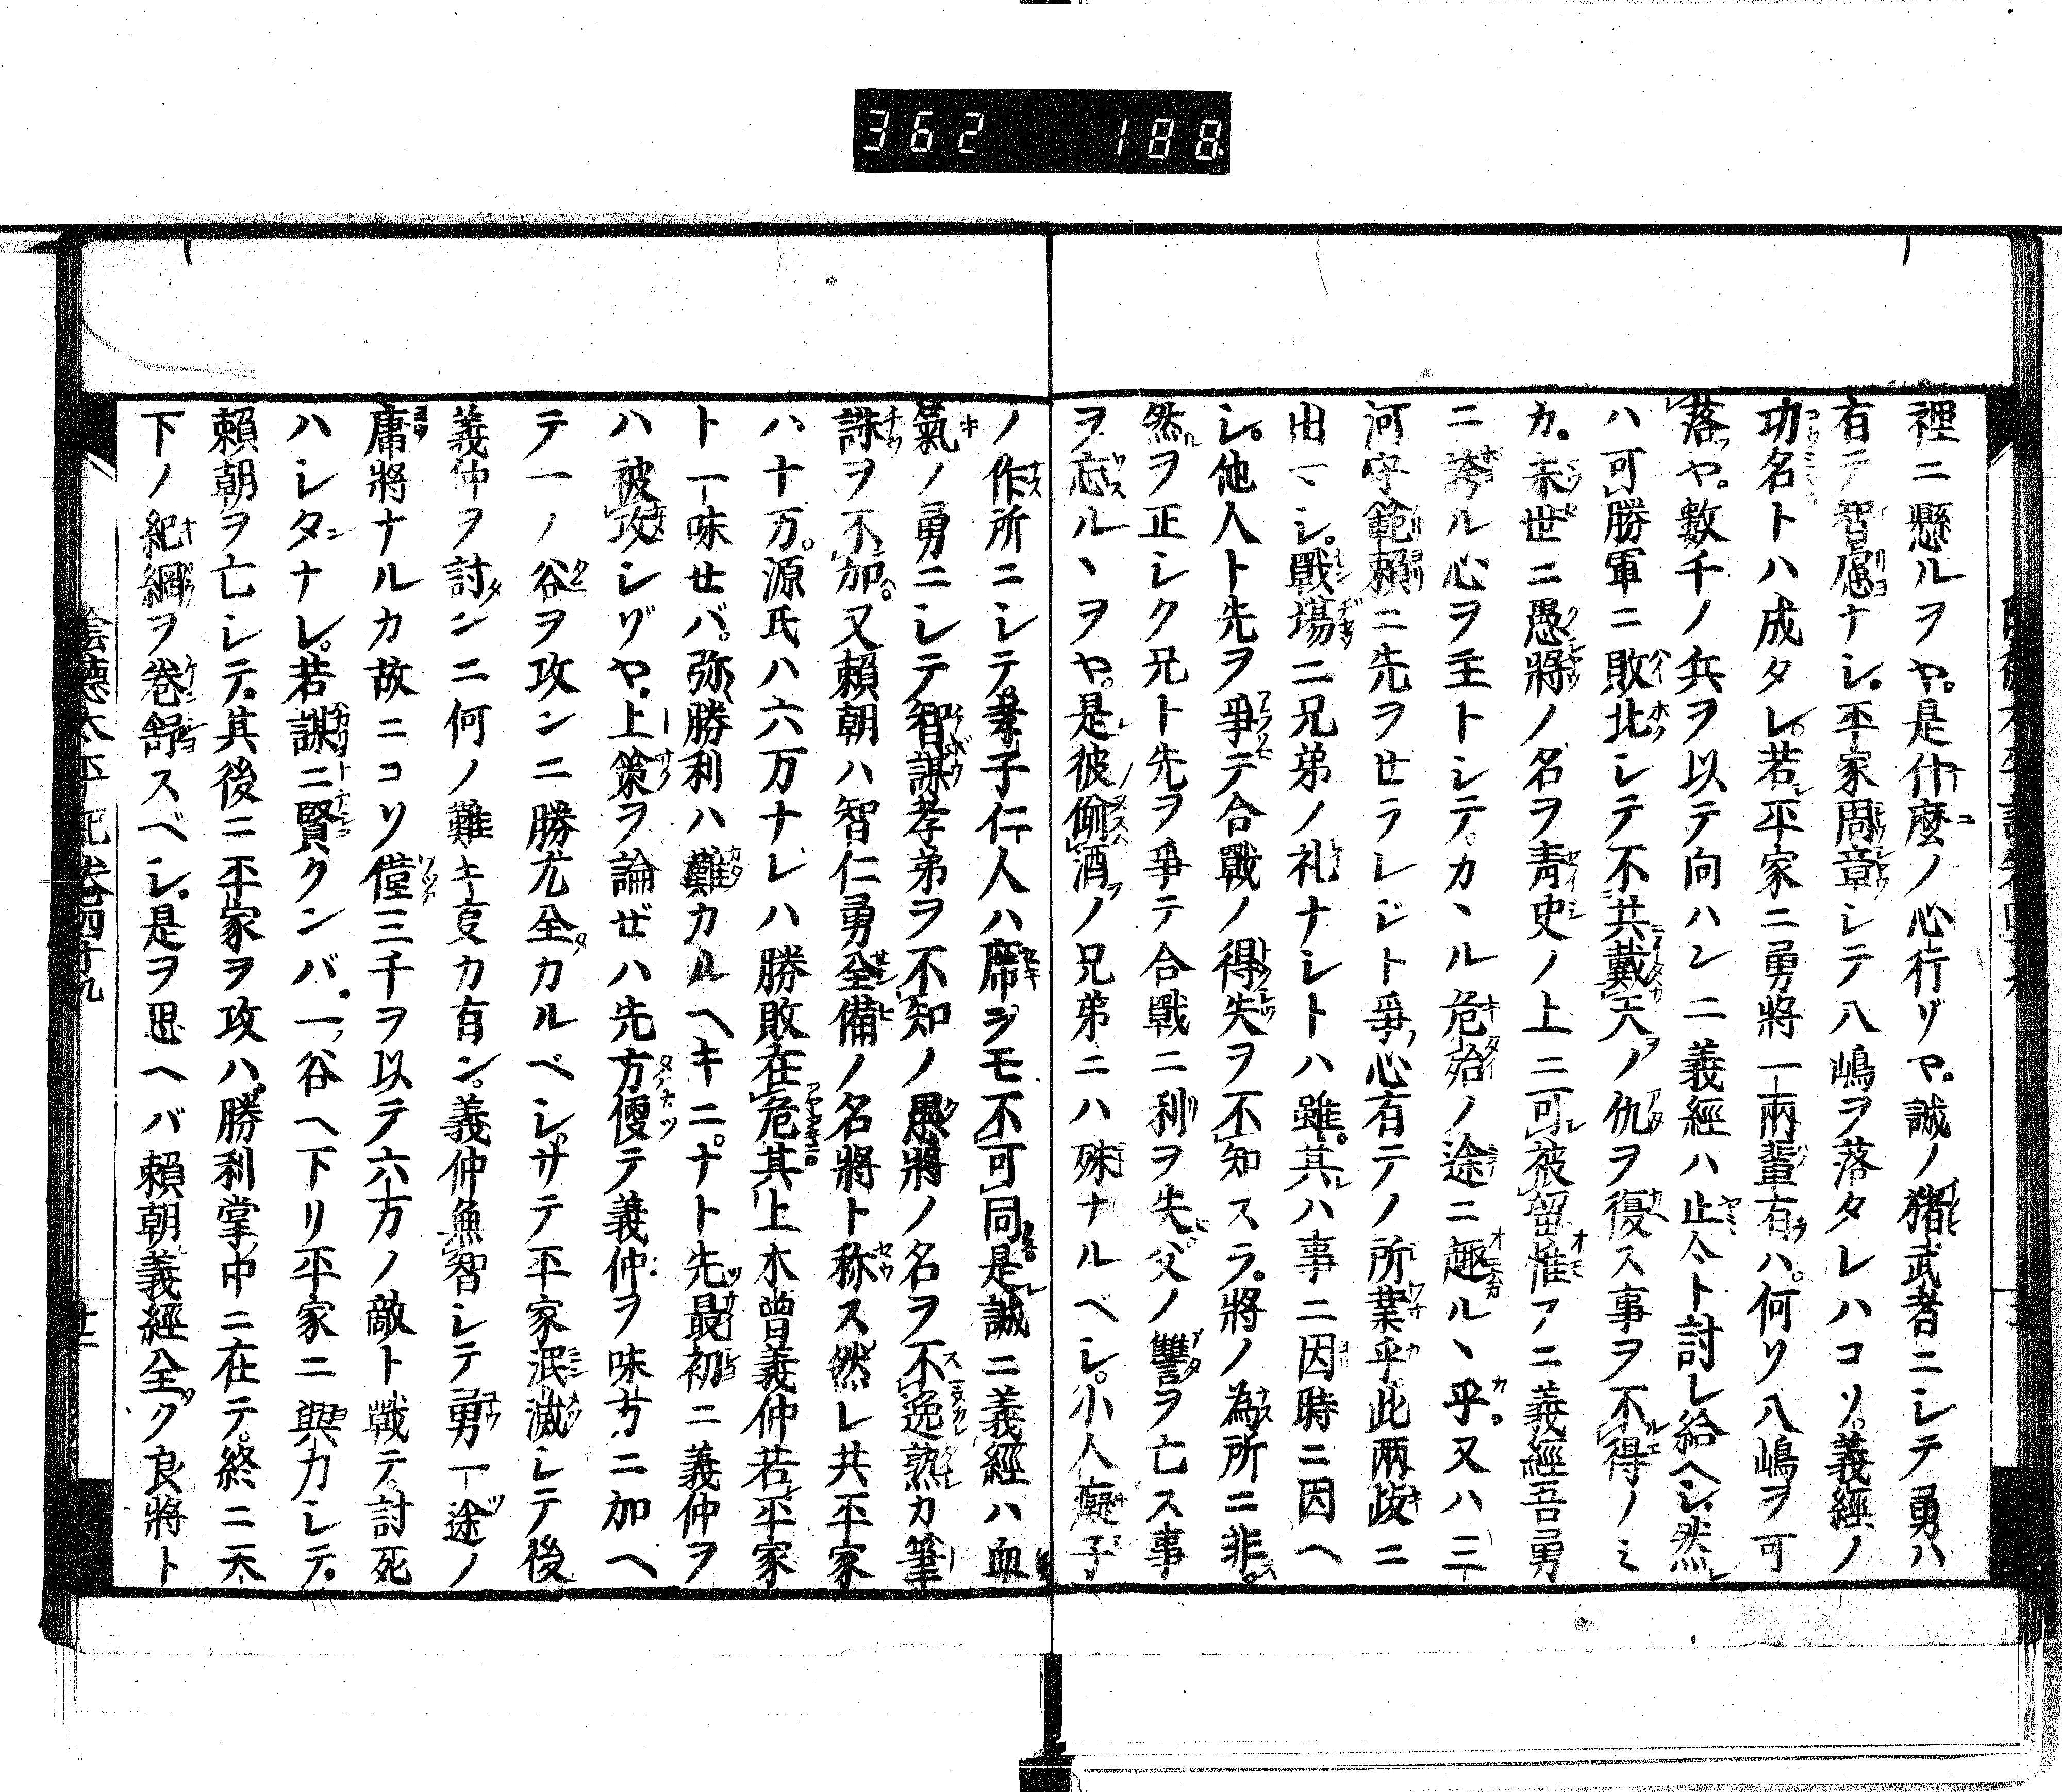 362 188
裡ニ懸ルヲヤ。是什麼ノ心行ゾヤ。誠ノ猪武者ニシテ勇ハ
有テ智慮ナシ。平家周章シテ八嶋ヲ落タレハコソ。義經ノ
功名トハ成タレ。若平家ニ勇將一兩輩有ハ。何ソ八嶋ヲ可
落ヤ。數千ノ兵ヲ以テ向ハンニ義經ハ止々ト討レ給ヘシ。然
ハ可勝軍ニ敗北シテ不共戴天ノ仇ヲ復ス事ヲ不得ノミ
カ。末世ニ愚將ノ名ヲ青史ノ上ニ可被留惟アニ義經吾勇
ニ誇ル心ヲ主トシテ。カヽル危殆ノ途ニ趣ルヽ乎。又ハ三
河守範頼ニ先ヲセラレジト爭心有テノ所業乎。此兩歧ニ
出ヘシ。戰場ニ兄弟ノ礼ナシトハ雖。其ハ事ニ因時ニ因ヘ
シ。他人ト先ヲ爭テ合戰ノ得失ヲ不知スラ。將ノ為所ニ非。
然ヲ正シク兄ト先ヲ爭テ合戰ニ利ヲ失。父ノ讐ヲ亡ス事
ヲ忘ルヽヲヤ。是彼偸酒ノ兄弟ニハ殊ナルベシ。小人癡子
ノ作所ニシテ孝子仁人ハ席ヲモ不可同。是誠ニ義經ハ血
氣ノ勇ニシテ智謀孝弟ヲ不知ノ愚將ノ名ヲ不逸熟カ筆
誅ヲ不加。又頼朝ハ智仁勇全備ノ名將ト称ス然レ共平家
ハ十万。源氏ハ六万ナレハ勝敗在危其上木曽義仲若平家
ト一味セバ。弥勝利ハ難カルヘキニ。ナト先最初ニ義仲ヲ
ハ被攻シゾヤ。上策ヲ論ゼハ先方便テ義仲ヲ味方ニ加ヘ
テ一ノ谷ヲ攻ンニ勝尤全カルベシ。サテ平家泯滅シテ後
義仲ヲ討ンニ何ノ難キ叓カ有ン。義仲無智シテ勇一途ノ
庸將ナルカ故ニコソ僅三千ヲ以テ六万ノ敵ト戰テ討死
ハシタナレ。若謀ニ賢クンバ。一谷ヘ下リ平家ニ與力シテ。
頼朝ヲ亡シテ。其後ニ平家ヲ攻ハ。勝利掌中ニ在テ。終ニ天
下ノ紀綱ヲ巻舒スベシ。是ヲ思ヘバ頼朝義經全ク良將ト
陰德太平記巻四十九